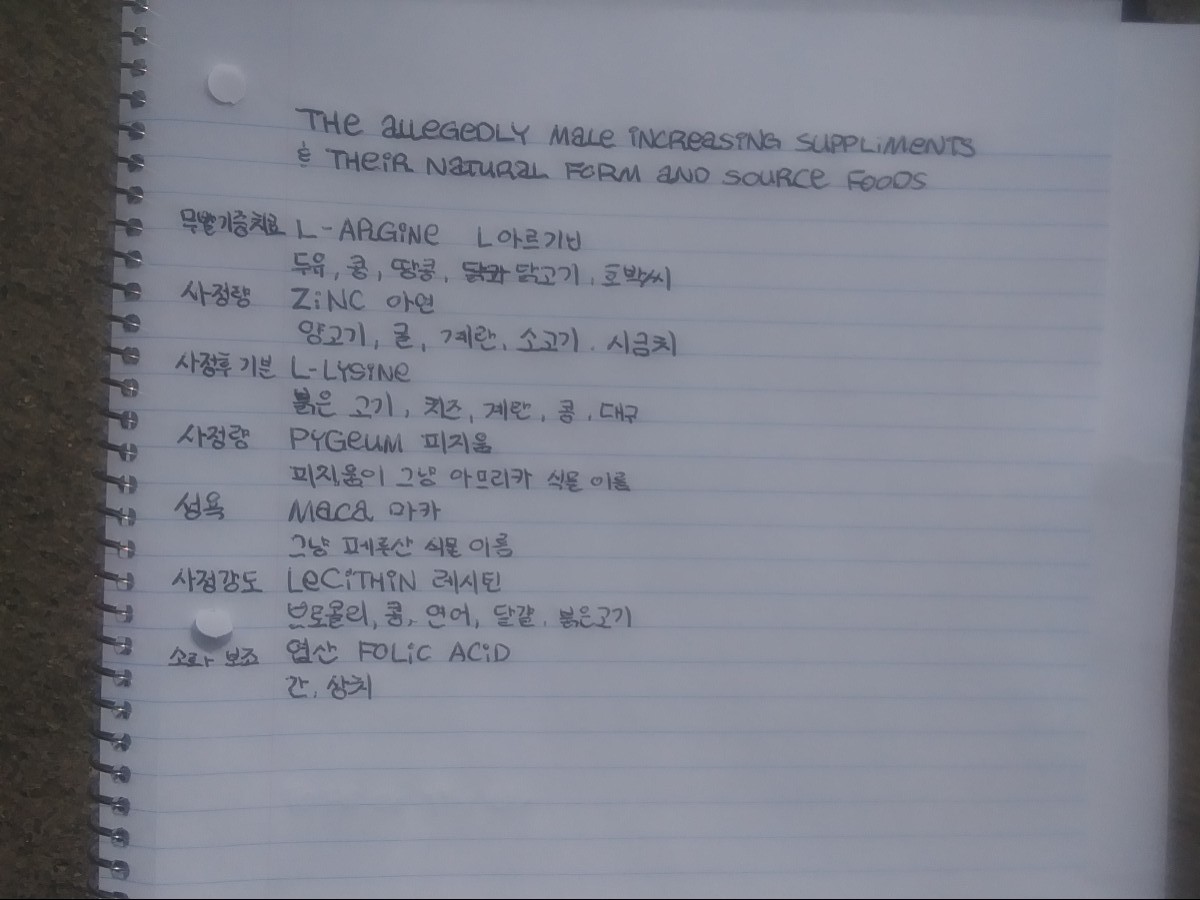 THE ALLEGEDLY MALE INCREASING SUPPLIMENTS
& THEIR NATURAL FORM AND SOURCE FOODS
무발기증치료 L-ARGINE L아르기닌
두유, 콩, 땅콩, 닭고기, 호박씨
사정량 ZINC 아연
양고기, 굴, 계란, 소고기, 시금치
사정후 기분 L-LYSINE
붉은 고기, 치즈, 계란, 콩, 대구
사정량 PYGEUM 피지움
피지움이 그냥 아프리카 식물 이름
성욕 MACA 마카
그냥 페루산 식물 이름
사정강도 LECITHIN 레시틴
브로콜리, 콩, 연어, 달걀, 붉은고기
보조 엽산 FOLIC ACID
간, 상치